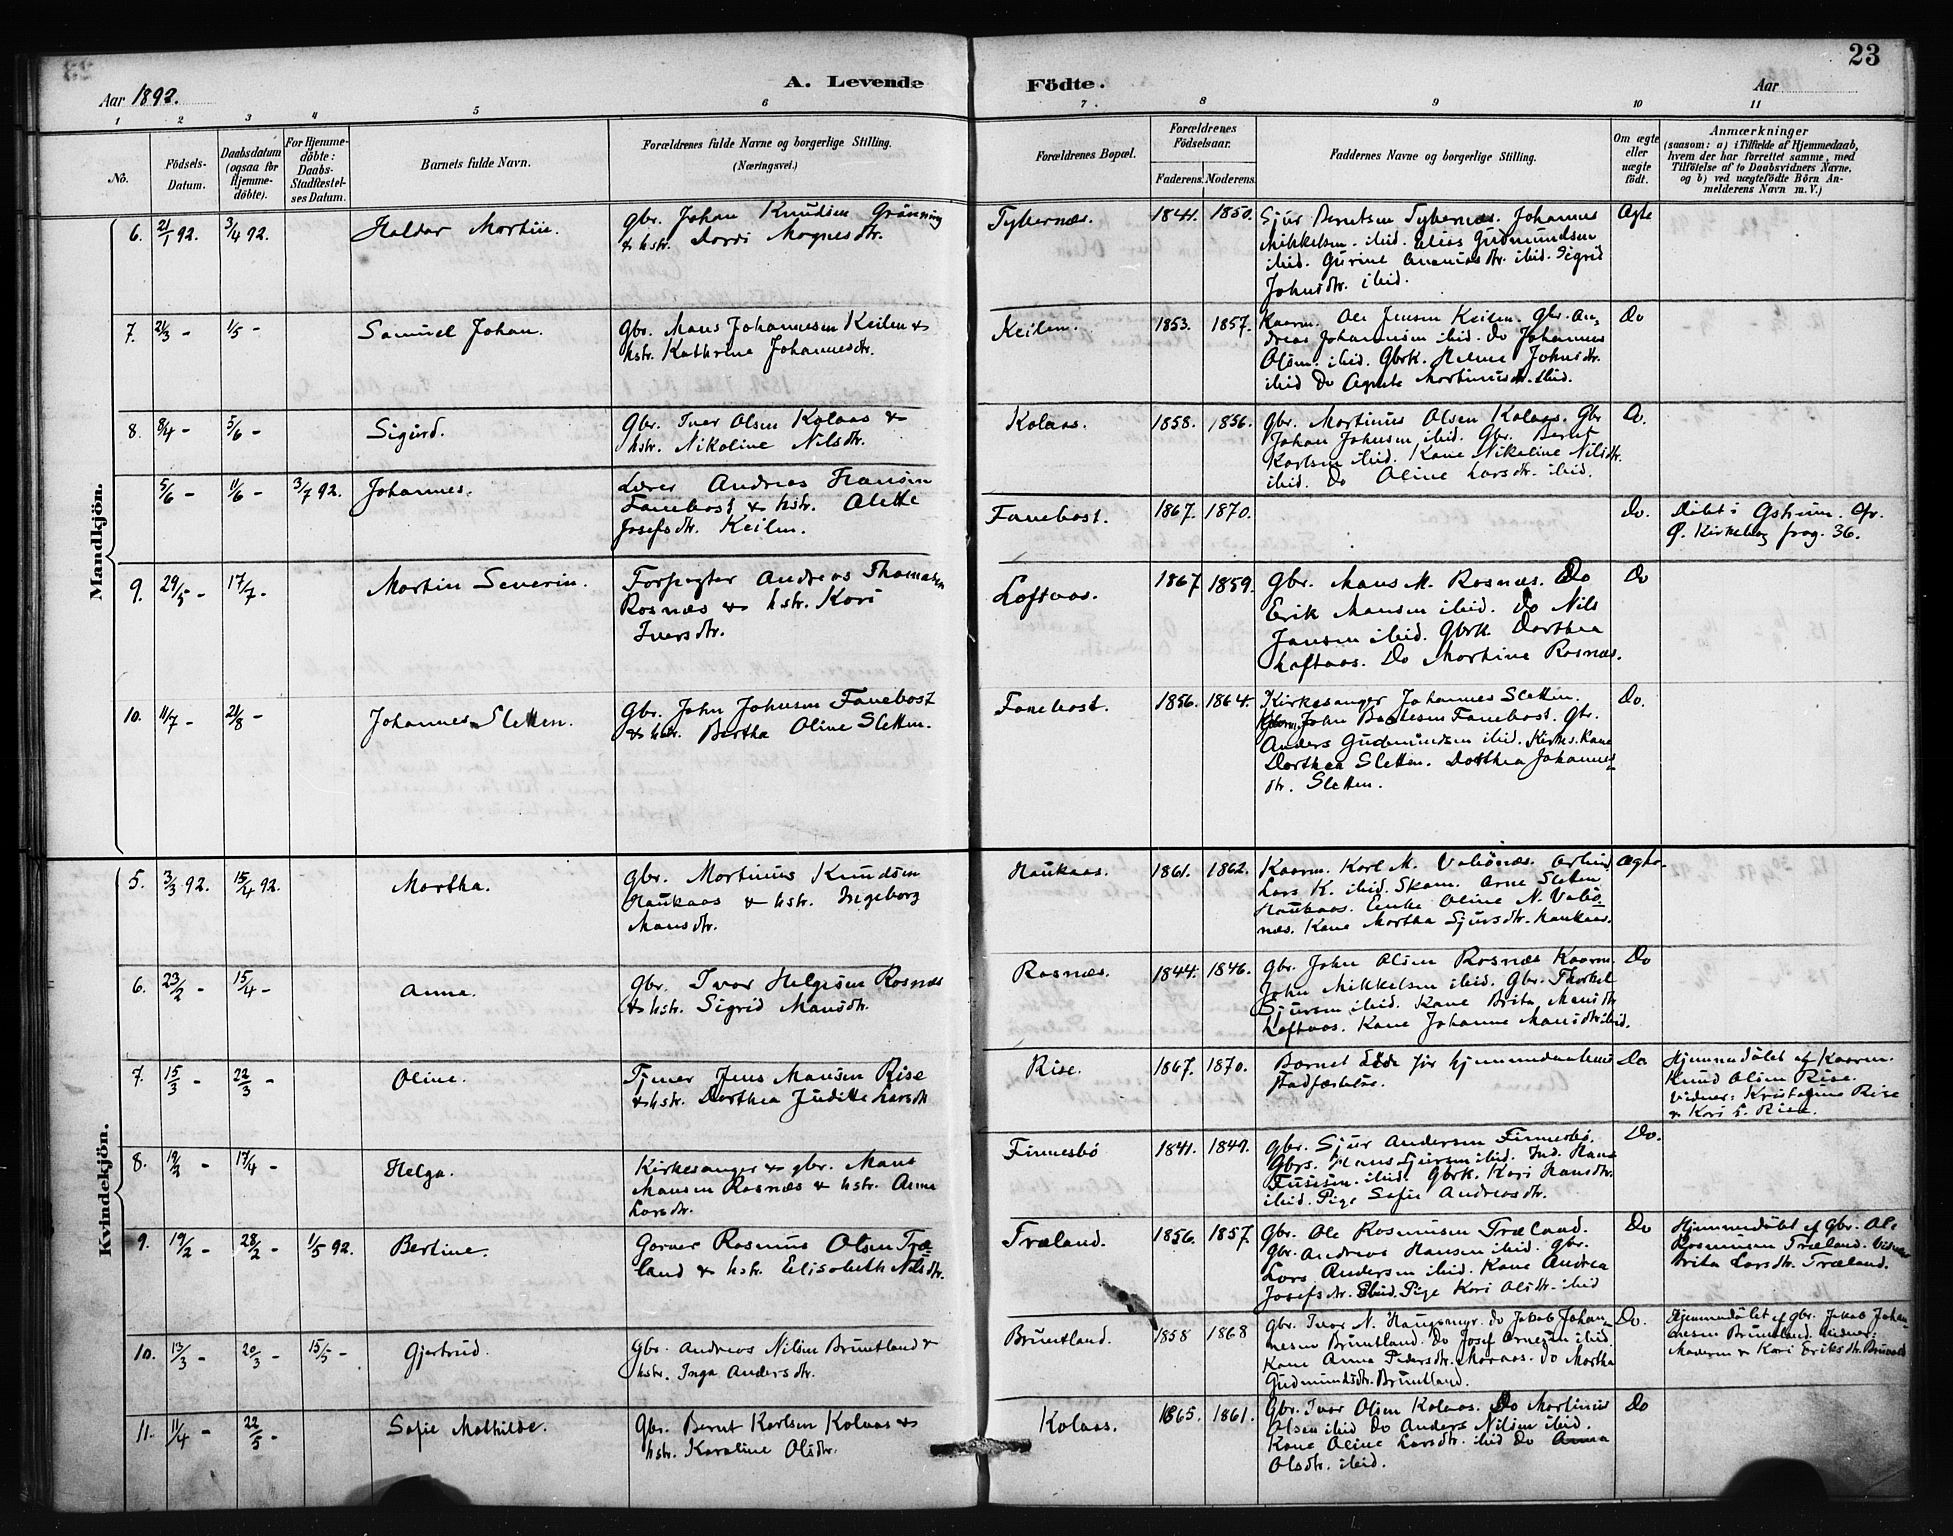 23
Aar 1892.
A. Levende Fødte.
Aar
1 2 3 4 5 6 7 8 9 10 11
No.
Födsels-Datum.
Daabsdatum (ogsaa for Hjemme-döbte).
For Hjemme-döbte: Daabs-Stadfæstel-ses Datum.
Barnets fulde Navn.
Forældrenes fulde Navne og borgerlige Stilling.
(Næringsvei.)
Forældrenes Bopæl.
Forældrenes Födselsaar.
Faderens. Moderens.
Faddernes Navne og borgerlige Stilling.
Om ægte eller uægte födt.
Anmærkninger
(saasom: a) i Tilfælde af Hjemmedaab, hvem der har forrettet samme, med Tilföielse af to Daabsvidners Navne, og b) ved uægtefödte Börn Anmelderens Navn m. V.)
Mandkjön.
6. 21/1 92. 3/4 92. Haldor Martin.
Gbr. Johan Knudsen Grønning
& hstr. Dordi Magnesdtr.
Tybernæs. 1841. 1850.
Sjur Berntsen Tybernæs. Johannes
Mikkelsen ibid. Elias Gudmundsen
ibid. Gurine Ananiasdtr. ibid. Sigrid
Johnsdtr. ibid.
Ægte
7. 21/3 - 1/5 - Samuel Johan.
Gbr. Mans Johannesen Keilen &
hstr. Kathrine Johannesdtr.
Keilen. 1853. 1857.
Kaarm. Ole Jensen Keilen. Gbr. An-
dreas Johannesen ibid. Do Johannes
Olsen ibid. Gbrk. Helene Johnsdtr.
ibid Do Agnete Martinusdtr. ibid.
Do
8. 8/4 - 5/6 - Sigurd.
Gbr. Ivar Olsen Kolaas &
hstr. Nikoline Nilsdtr.
Kolaas. 1858. 1856.
Gbr. Martinus Olsen Kolaas. Gbr
Johan Johnsen ibid. Gbr. Bernt
Karlsen ibid. Kone Nikoline Nilsdtr.
ibid. Do Oline Larsdtr. ibid.
Do.
5/6 - 11/6 - 3/7 92. Johannes.
Lærer Andreas Hansen
Fanebost & hstr. Alette
Josefsdtr. Keilen.
Fanebost. 1867. 1870.
Do.
Døbt i Gstrum. Cfr.
Ø. Kirkebog pag. 36.
9. 29/5 - 17/7 - Martin Severin.
Forpagter Andreas Thomasen
Rosnæs & hstr. Kari
Iversdtr.
Loftaas. 1867 1859.
Gbr. Mans M. Rosnæs. Do
Erik Mansen ibid. Do Nils
Jansen ibid. Gbrk. Dorthea
Loftaas. Do Martine Rosnæs.
Do
10. 11/7 - 21/8 - Johannes Sletten.
Gbr. John Johnsen Fanebost
& hstr. Bertha Oline Sletten.
Fanebost. 1856. 1864.
Kirkesanger Johannes Sletten.
John Baltesen Fanebost. Gbr.
Anders Gudmundsen ibid. Kirkes. Kone
Dorthea Sletten. Dorthea Johannes-
dtr. Sletten.
Do.
Kvindekjön.
5. 3/3 92. 15/4 92. Martha.
Gbr. Martinus Knudsen
Haukaas & hstr. Ingeborg
Mansdtr.
Haukaas. 1861. 1862.
Kaarm. Karl M. Valsönæs.
Lars K. ibid. Skom. Arne Sletten
Haukaas. Enke Oline N. Valsö-
næs. Kone Martha Sjursdtr. Haukaas.
Ægte.
6. 23/2 - 15/4 - Anna.
Gbr. Ivar Helgesen Rosnæs
& hstr. Sigrid Mansdtr.
Rosnæs. 1844. 1846.
Gbr. John Olsen Rosnæs Kaarm.
John Mikkelsen ibid. Gbr. Thorkel
Sjursen ibid. Kone Brita Mansdtr
Loftaas. Kone Johanne Mansdtr ibid.
Do
7. 15/3 - 22/3 - Oline.
Tjener Jens Mansen Rise
& hstr. Dorthea Juditte Larsdtr
Rise. 1867. 1870.
Barnet döde för hjemmedaabens
Stadfæstelse.
Do.
Hjemmedöbt af Kaarm.
Knud Olsen Rise.
Vidner: Kristofine Rise
& Kari L. Rise.
8. 19/2 - 17/4 - Helga.
Kirkesanger & gbr. Mans
Mansen Rosnæs & hstr. Anna
Larsdtr.
Finnesbö 1841. 1849.
Gbr. Sjur Andersen Finnesbö.
Gbrs. Hans Sjursen ibid. Ind. Hans
ibid. Gbrk. Kari Hansdtr.
ibid. Pige Sofie Andreasdtr.
Do.
9. 19/2 - 28/2 - 1/5 92. Bertine.
Garver Rasmus Olsen Træ-
land & hstr. Elisabeth Nilsdtr.
Træland. 1856. 1857
Gbr. Ole Rasmusen Træland.
Gbr. Andreas Hansen ibid. Gbr.
Lars Andersen ibid. Kone Andrea
Josefsdtr. ibid. Pige Kari Olsdtr. ibid
Do
Hjemmedöbt af Gbr. Ole
Rasmusen Træland. Vidner
Brita Larsdtr. Træland.
10. 13/3 - 20/3 - 15/5 - Gjertrud.
Gbr. Andreas Nilsen Bruntland &
hstr. Inga Andersdtr.
Bruntland. 1858 1868
Gbr. Ivar N. Haugsmyr. Do Jakob Johan-
nesen Bruntland. Do Josef Arnesen ibid
Kone Anna Pedersdtr. Maraas. Do Martha
Gudmundsdtr. Bruntland.
Do.
Hjemmedöbt af Gbr. Jakob Johan-
nesen Bruntland. Vidner:
Moderen & Kari Eriksdtr.
11. 11/4 - 22/5 - Sofie Mathilde.
Gbr. Bernt Karlsen Kolaas &
hstr. Karoline Olsdtr.
Kolaas. 1865. 1861.
Gbr. Ivar Olsen Kolaas. Do Martinus
Olsen ibid Do Anders Nilsen ibid.
Kone Oline Larsdtr. ibid Do Anna
Olsdtr. ibid.
Do